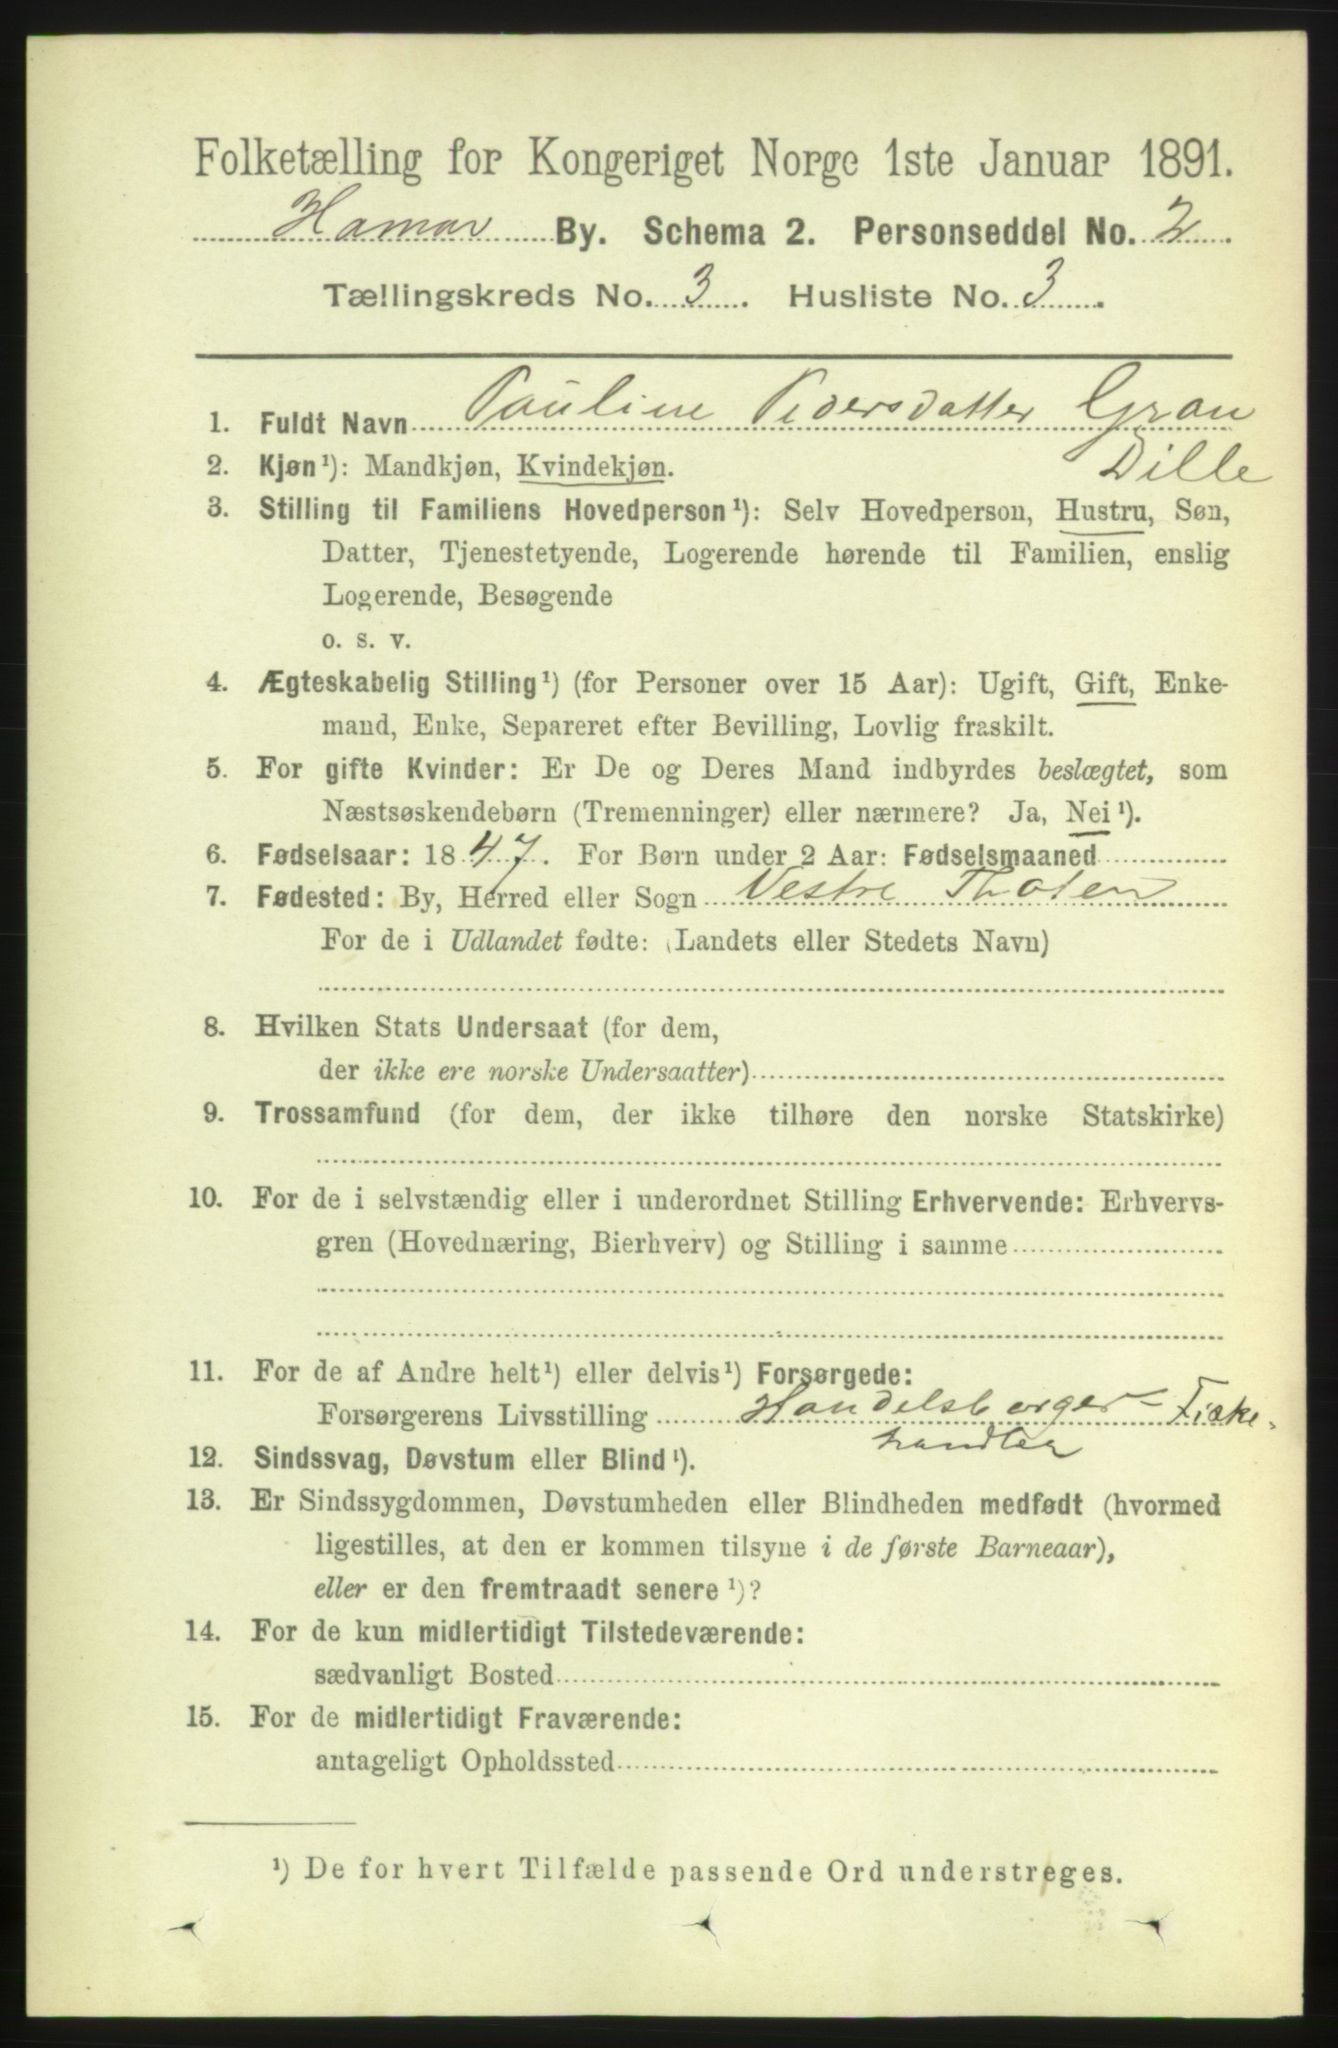 Folketælling for Kongeriget Norge 1ste Januar 1891.
Hamar By. Schema 2. Personseddel No. 2.
Tællingskreds No. 3. Husliste No. 3.
1. Fuldt Navn Pauline Pedersdatter Gran
Dille
2. Kjøn¹): Mandkjøn, Kvindekjøn.
3. Stilling til Familiens Hovedperson¹): Selv Hovedperson, Hustru, Søn,
Datter, Tjenestetyende, Logerende hørende til Familien, enslig
Logerende, Besøgende
o. s. v.
4. Ægteskabelig Stilling¹) (for Personer over 15 Aar): Ugift, Gift, Enke-
mand, Enke, Separeret efter Bevilling, Lovlig fraskilt.
5. For gifte Kvinder: Er De og Deres Mand indbyrdes beslægtet, som
Næstsøskendebørn (Tremenninger) eller nærmere? Ja, Nei¹).
6. Fødselsaar: 1847. For Børn under 2 Aar: Fødselsmaaned
7. Fødested: By, Herred eller Sogn Vestre Thoten
For de i Udlandet fødte: (Landets eller Stedets Navn)
8. Hvilken Stats Undersaat (for dem,
der ikke ere norske Undersaatter)
9. Trossamfund (for dem, der ikke tilhøre den norske Statskirke)
10. For de i selvstændig eller i underordnet Stilling Erhvervende: Erhvervs-
gren (Hovednæring, Bierhverv) og Stilling i samme
11. For de af Andre helt¹) eller delvis¹) Forsørgede:
Forsørgerens Livsstilling Handelsborger - Fiske-
handler
12. Sindssvag, Døvstum eller Blind¹).
13. Er Sindssygdommen, Døvstumheden eller Blindheden medfødt (hvormed
ligestilles, at den er kommen tilsyne i de første Barneaar),
eller er den fremtraadt senere¹)?
14. For de kun midlertidigt Tilstedeværende:
sædvanligt Bosted
15. For de midlertidigt Fraværende:
antageligt Opholdssted
¹) De for hvert Tilfælde passende Ord understreges.